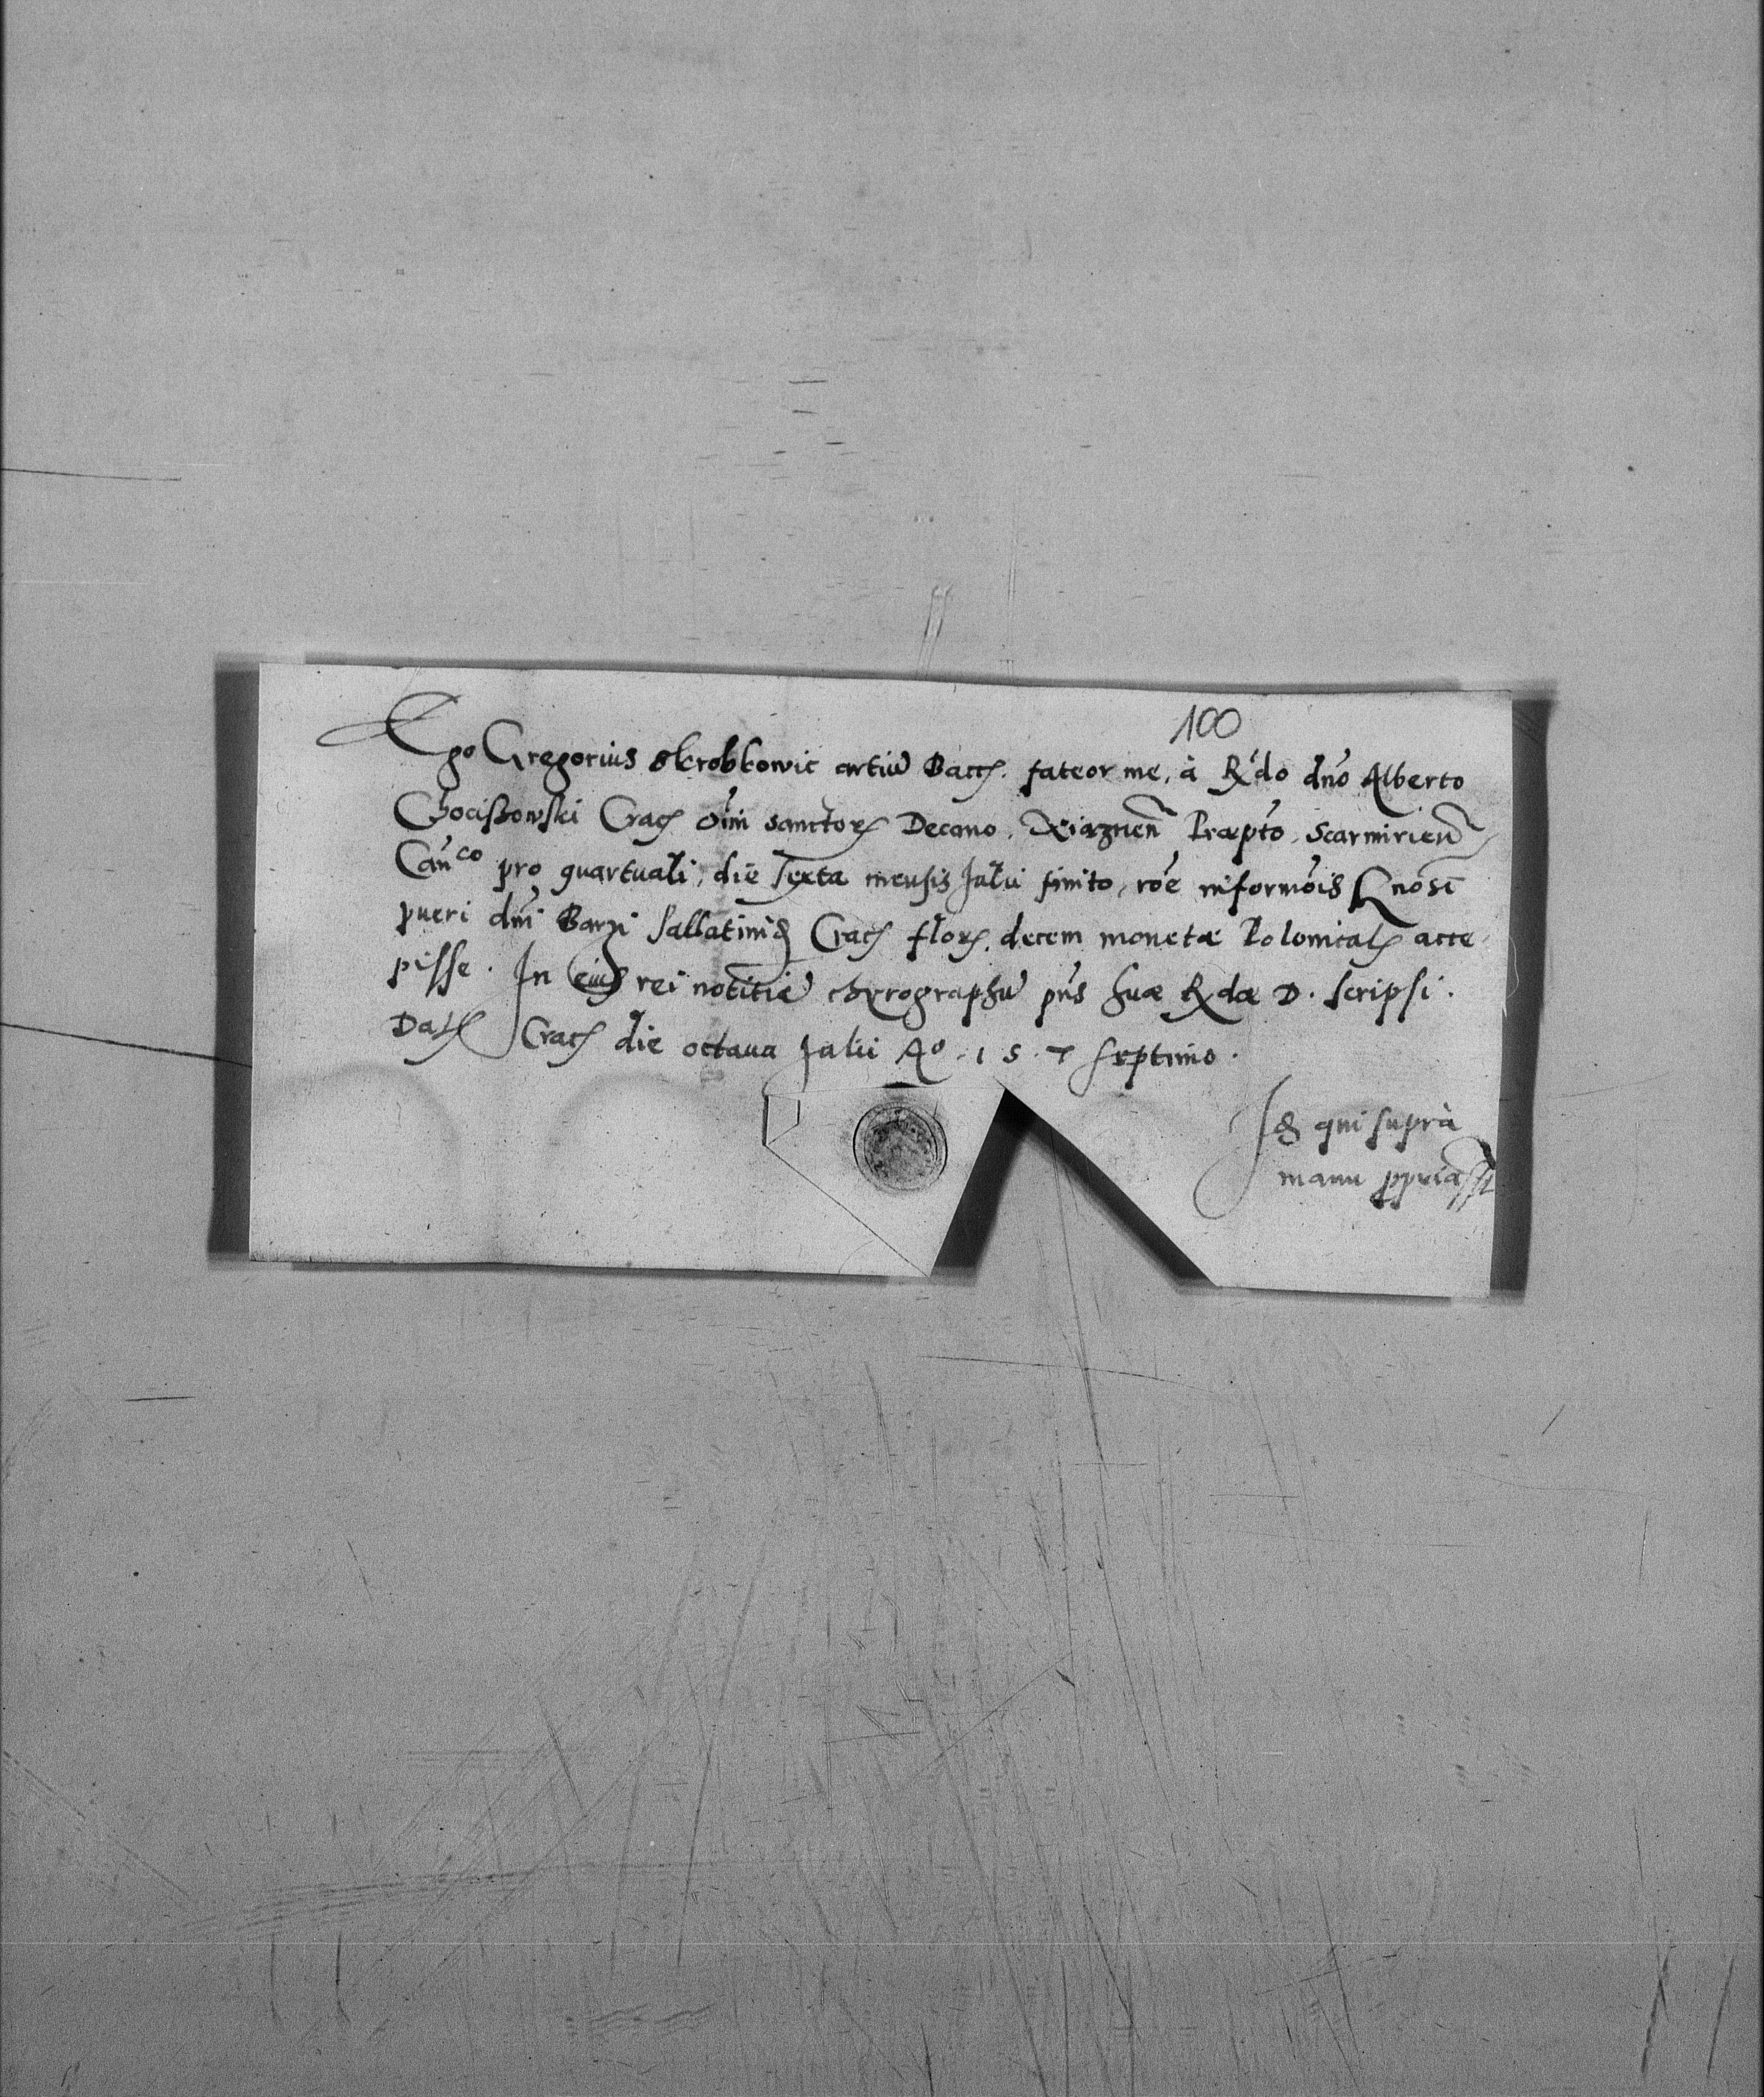 100
Ego Gregorius Skrobkowic artiū Bacc. fateor me, à R̃do dño Alberto
Chocißowski Crac oīm sanctor Decano, Xiąznen̄ Præpto, Scarmirien̄
Cañco pro quartuali, die sexta mensis Julii finito, rõe informõis
pueri dñi Barzi Crac flor. decem monetæ acce
pisse. In eius rei notitiā chyrographū pñs suæ R̃dæ D. scripsi.
Dat Crac die octaua Julii Ao. 1 5. 7 septimo.
Idē qui suprà
manu ppria